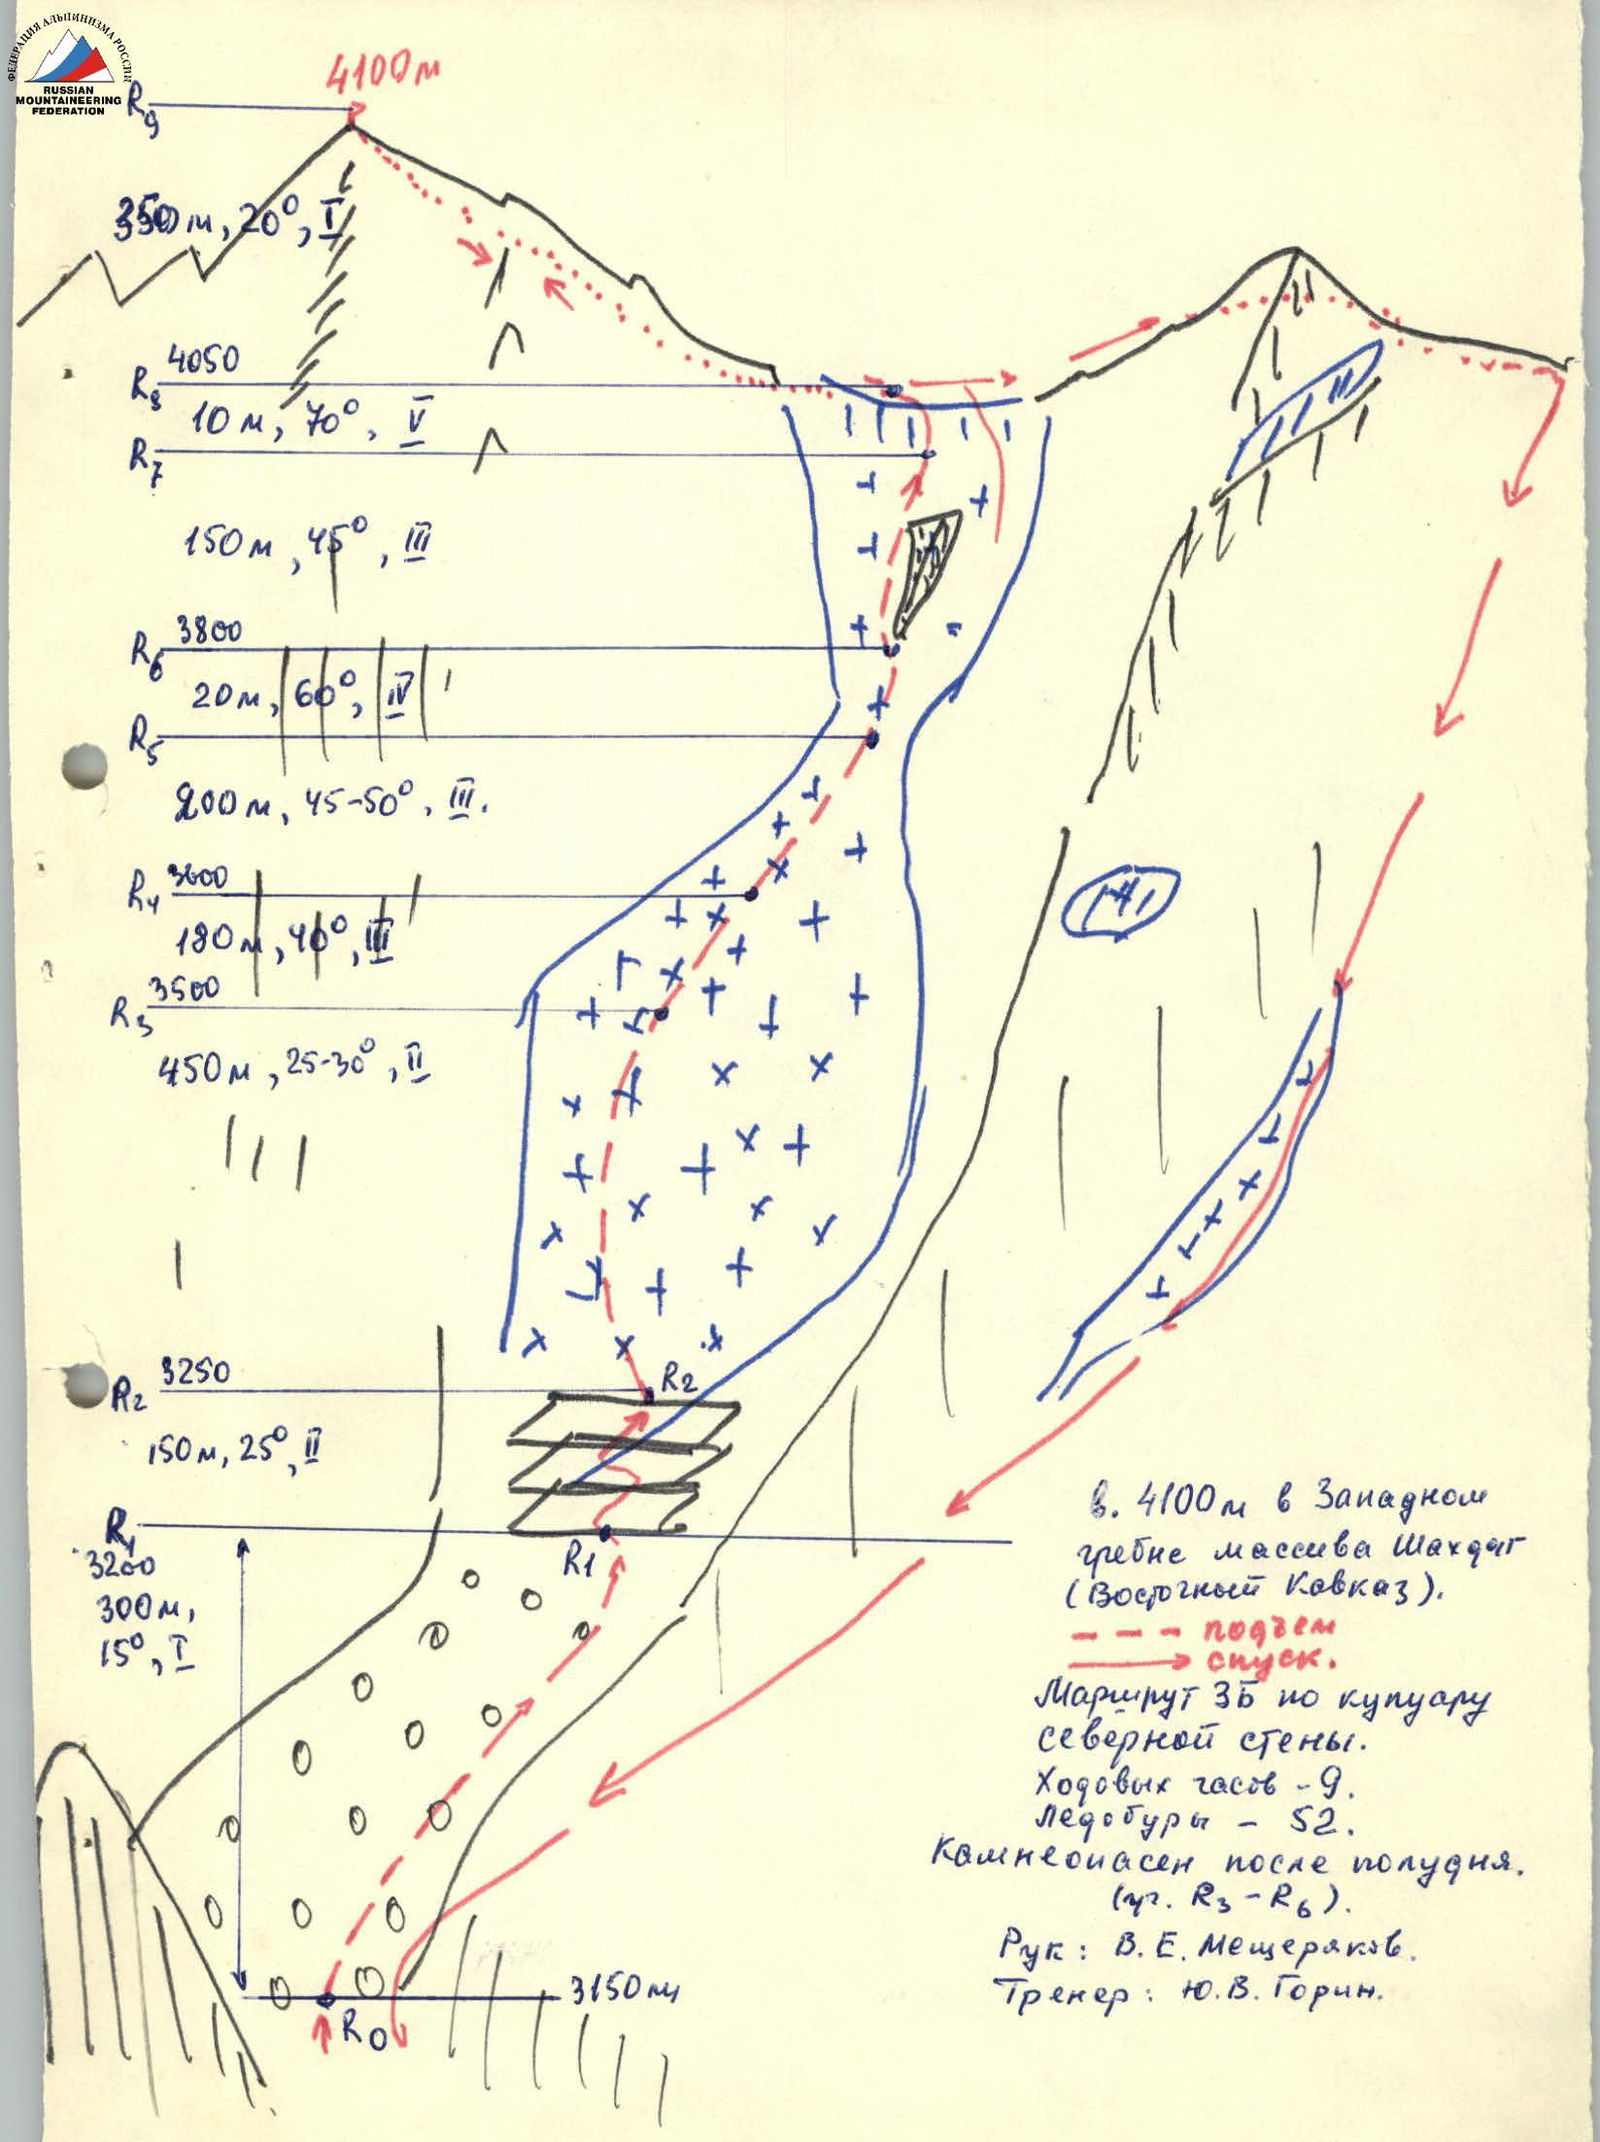 ФЕДЕРАЦИЯ АЛЬПИНИЗМА РОССИИ
RUSSIAN
MOUNTAINEERING
FEDERATION
4100м
R9
350м, 20°, I
4050
R8
10м, 70°, V
R7
150м, 45°, III
3800
R6
20м, 60°, IV
R5
200м, 45-50°, III.
3600
R4
180м, 40°, III
3500
R3
450м, 25-30°, II
3250
R2
R2
150м, 25°, II
R1
R1
3200
300м,
15°, I
3150м
R0
в. 4100м в Западном
гребне массива Шахдаг
(Восточный Кавказ).
подъем
спуск.
Маршрут 3Б по кулуару
северной стены.
Ходовых часов - 9.
Ледобуры - 52.
Камнеопасен после полудня.
(уч. R3 - R6).
Рук: В.Е. Мещеряков.
Тренер: Ю.В. Горин.